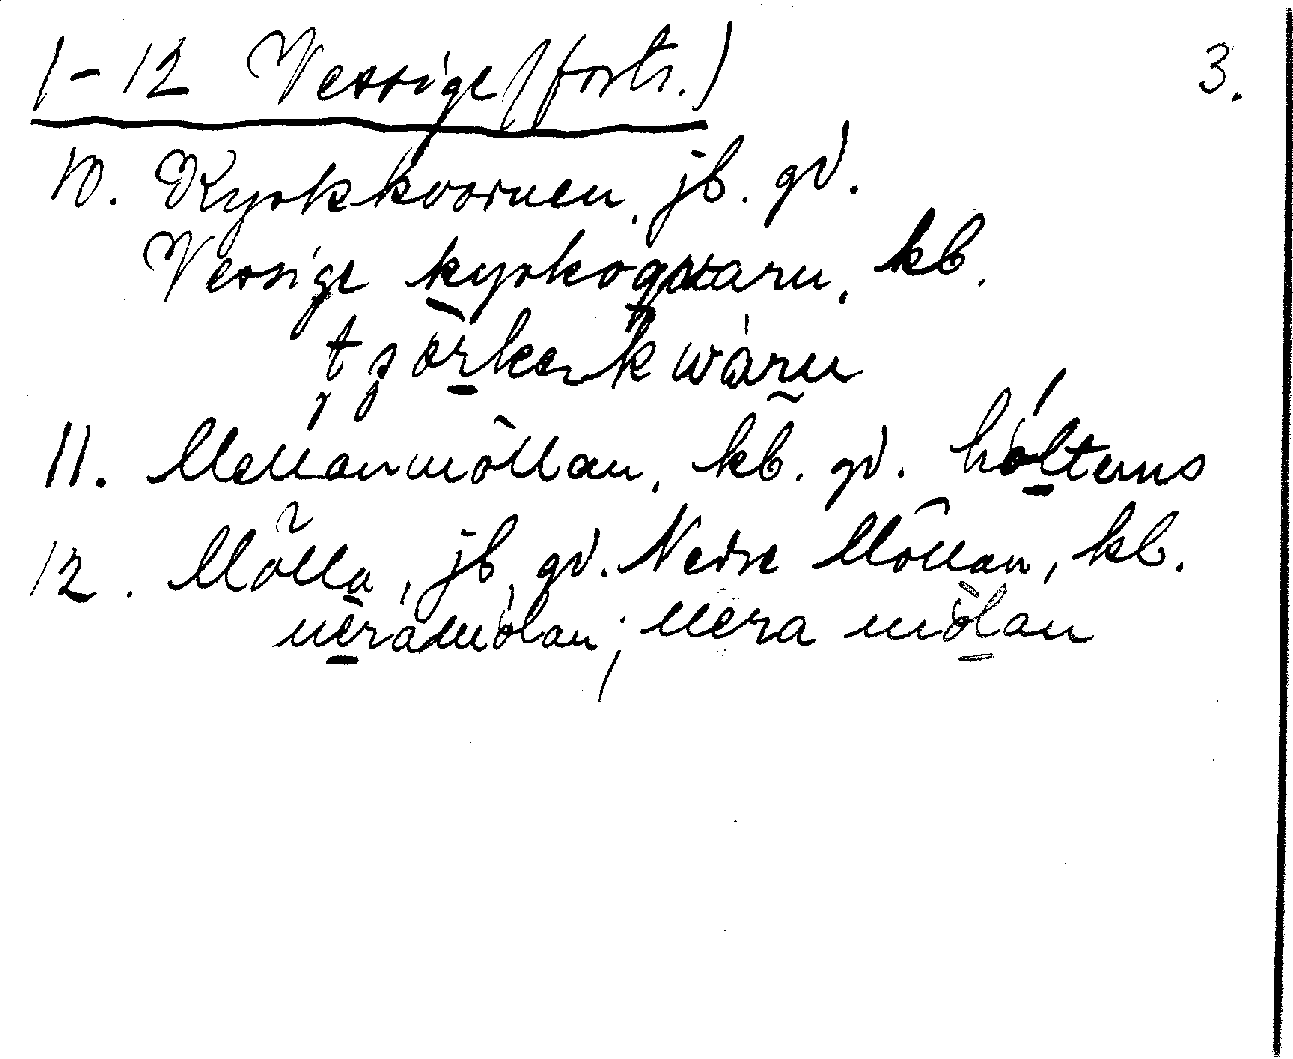 1-12 Vessige (forts.) 3.
10. Kyrkkvarnen, jb. gd.
Vessige kyrkoqvarn, kb.
11. Mellanmöllan, kb. gd. hóltens
12. Mölla, jb, gd. Nedre Möllan, kb.
nerámölan; nera mölan